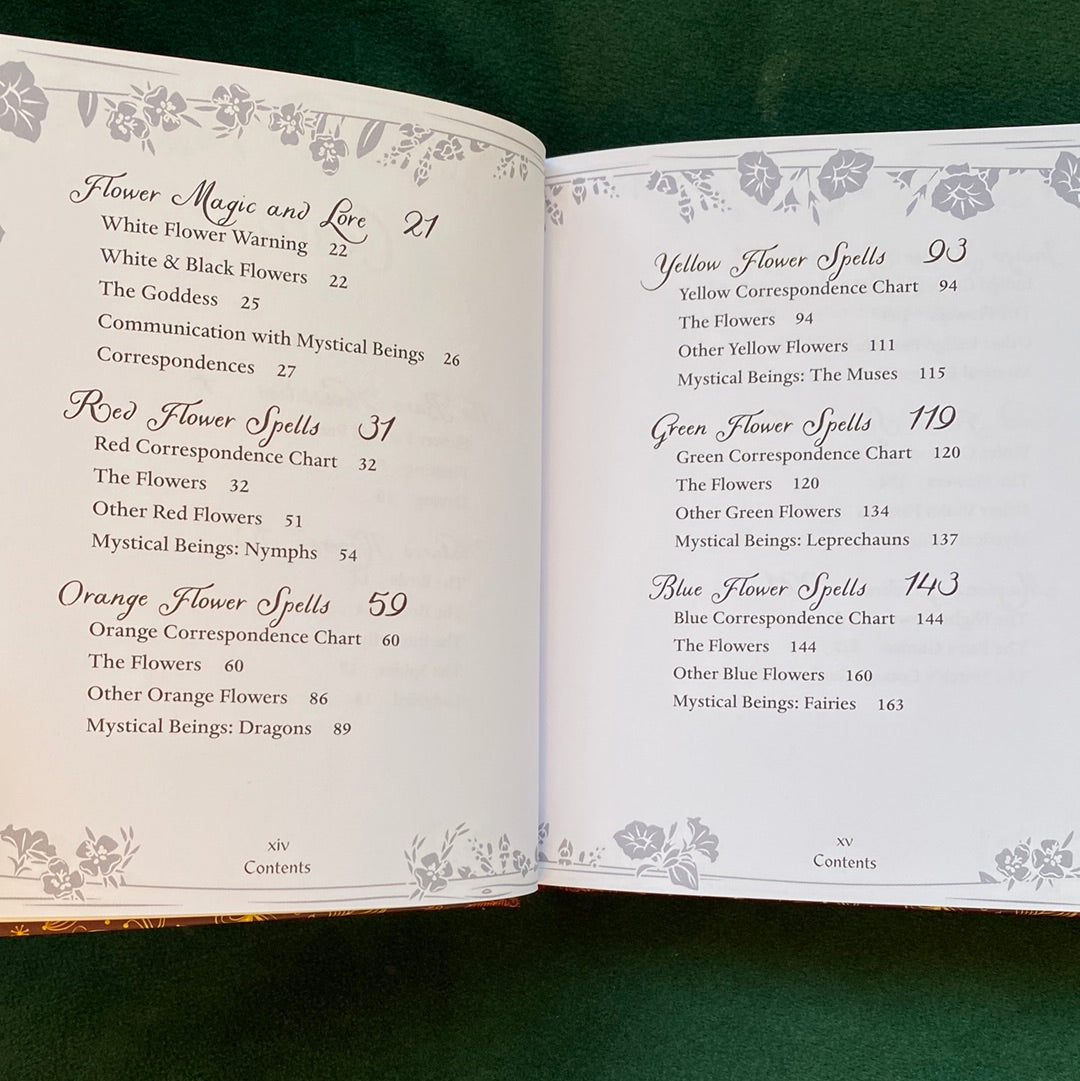 Flower Magic and Lore 21
White Flower Warning 22
White & Black Flowers 22
The Goddess 25
Communication with Mystical Beings 26
Correspondences 27
Red Flower Spells 31
Red Correspondence Chart 32
The Flowers 32
Other Red Flowers 51
Mystical Beings: Nymphs 54
Orange Flower Spells 59
Orange Correspondence Chart 60
The Flowers 60
Other Orange Flowers 86
Mystical Beings: Dragons 89
xiv
Contents
Yellow Flower Spells 93
Yellow Correspondence Chart 94
The Flowers 94
Other Yellow Flowers 111
Mystical Beings: The Muses 115
Green Flower Spells 119
Green Correspondence Chart 120
The Flowers 120
Other Green Flowers 134
Mystical Beings: Leprechauns 137
Blue Flower Spells 143
Blue Correspondence Chart 144
The Flowers 144
Other Blue Flowers 160
Mystical Beings: Fairies 163
xv
Contents